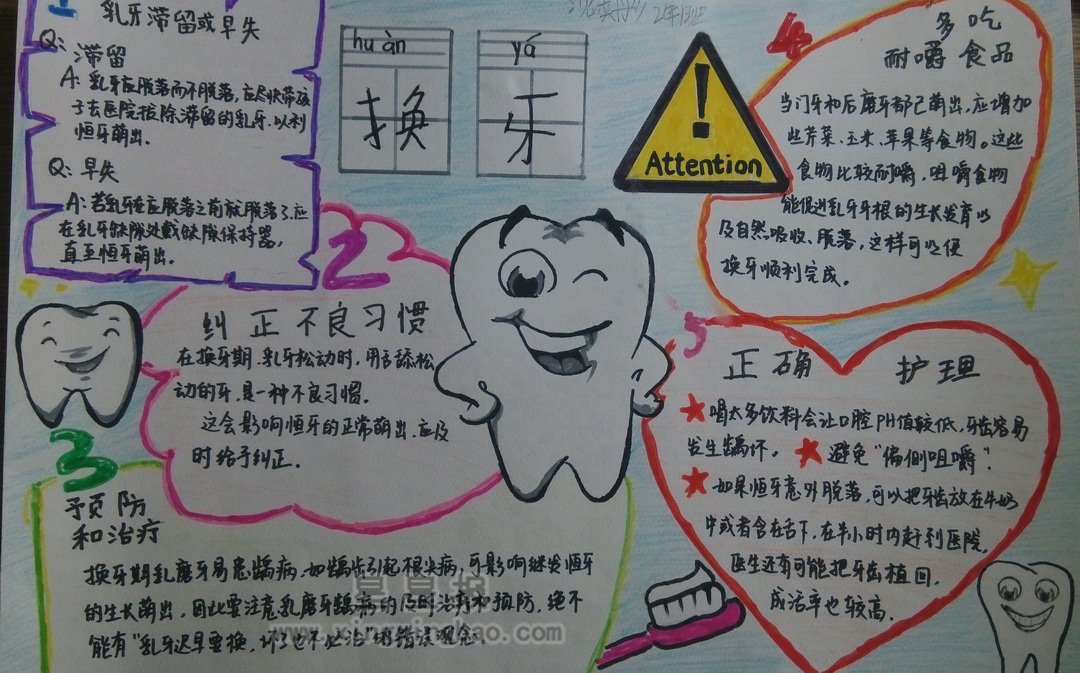 1
乳牙滞留或早失
Q: 滞留
A: 乳牙应脱落而不脱落,应尽快带孩
子去医院拔除滞留的乳牙.以利
恒牙萌出.
Q: 早失
A: 若乳牙在应脱落之前就脱落了.应
在乳牙缺隙处戴缺隙保持器,
直至恒牙萌出.
huàn
yá
换
牙
2年13班
Attention
4
多吃
耐嚼食品
当门牙和后磨牙都已萌出.应增加
些芹菜、玉米、苹果等食物。这些
食物比较耐嚼,咀嚼食物
能促进乳牙牙根的生长发育以
及自然吸收、脱落,这样可以使
换牙顺利完成。
2
纠正不良习惯
在换牙期.乳牙松动时,用舌舔松
动的牙.是一种不良习惯.
这会影响恒牙的正常萌出.应及
时给予纠正.
3
预防
和治疗
换牙期乳磨牙易患龋病.如龋齿引起根尖病,可影响继发恒牙
的生长萌出,因此要注意乳磨牙龋病的及时治疗和预防,绝不
能有"乳牙迟早要换,坏了也不必治"的错误观念.
星星报
www.xingxingbao.com
5
正确 护理
★喝太多饮料会让口腔PH值较低,牙齿容易
发生龋坏。 ★避免"偏侧咀嚼".
★如果恒牙意外脱落,可以把牙齿放在牛奶
中或者含在舌下,在半小时内赶到医院,
医生还有可能把牙齿植回,
成活率也较高.